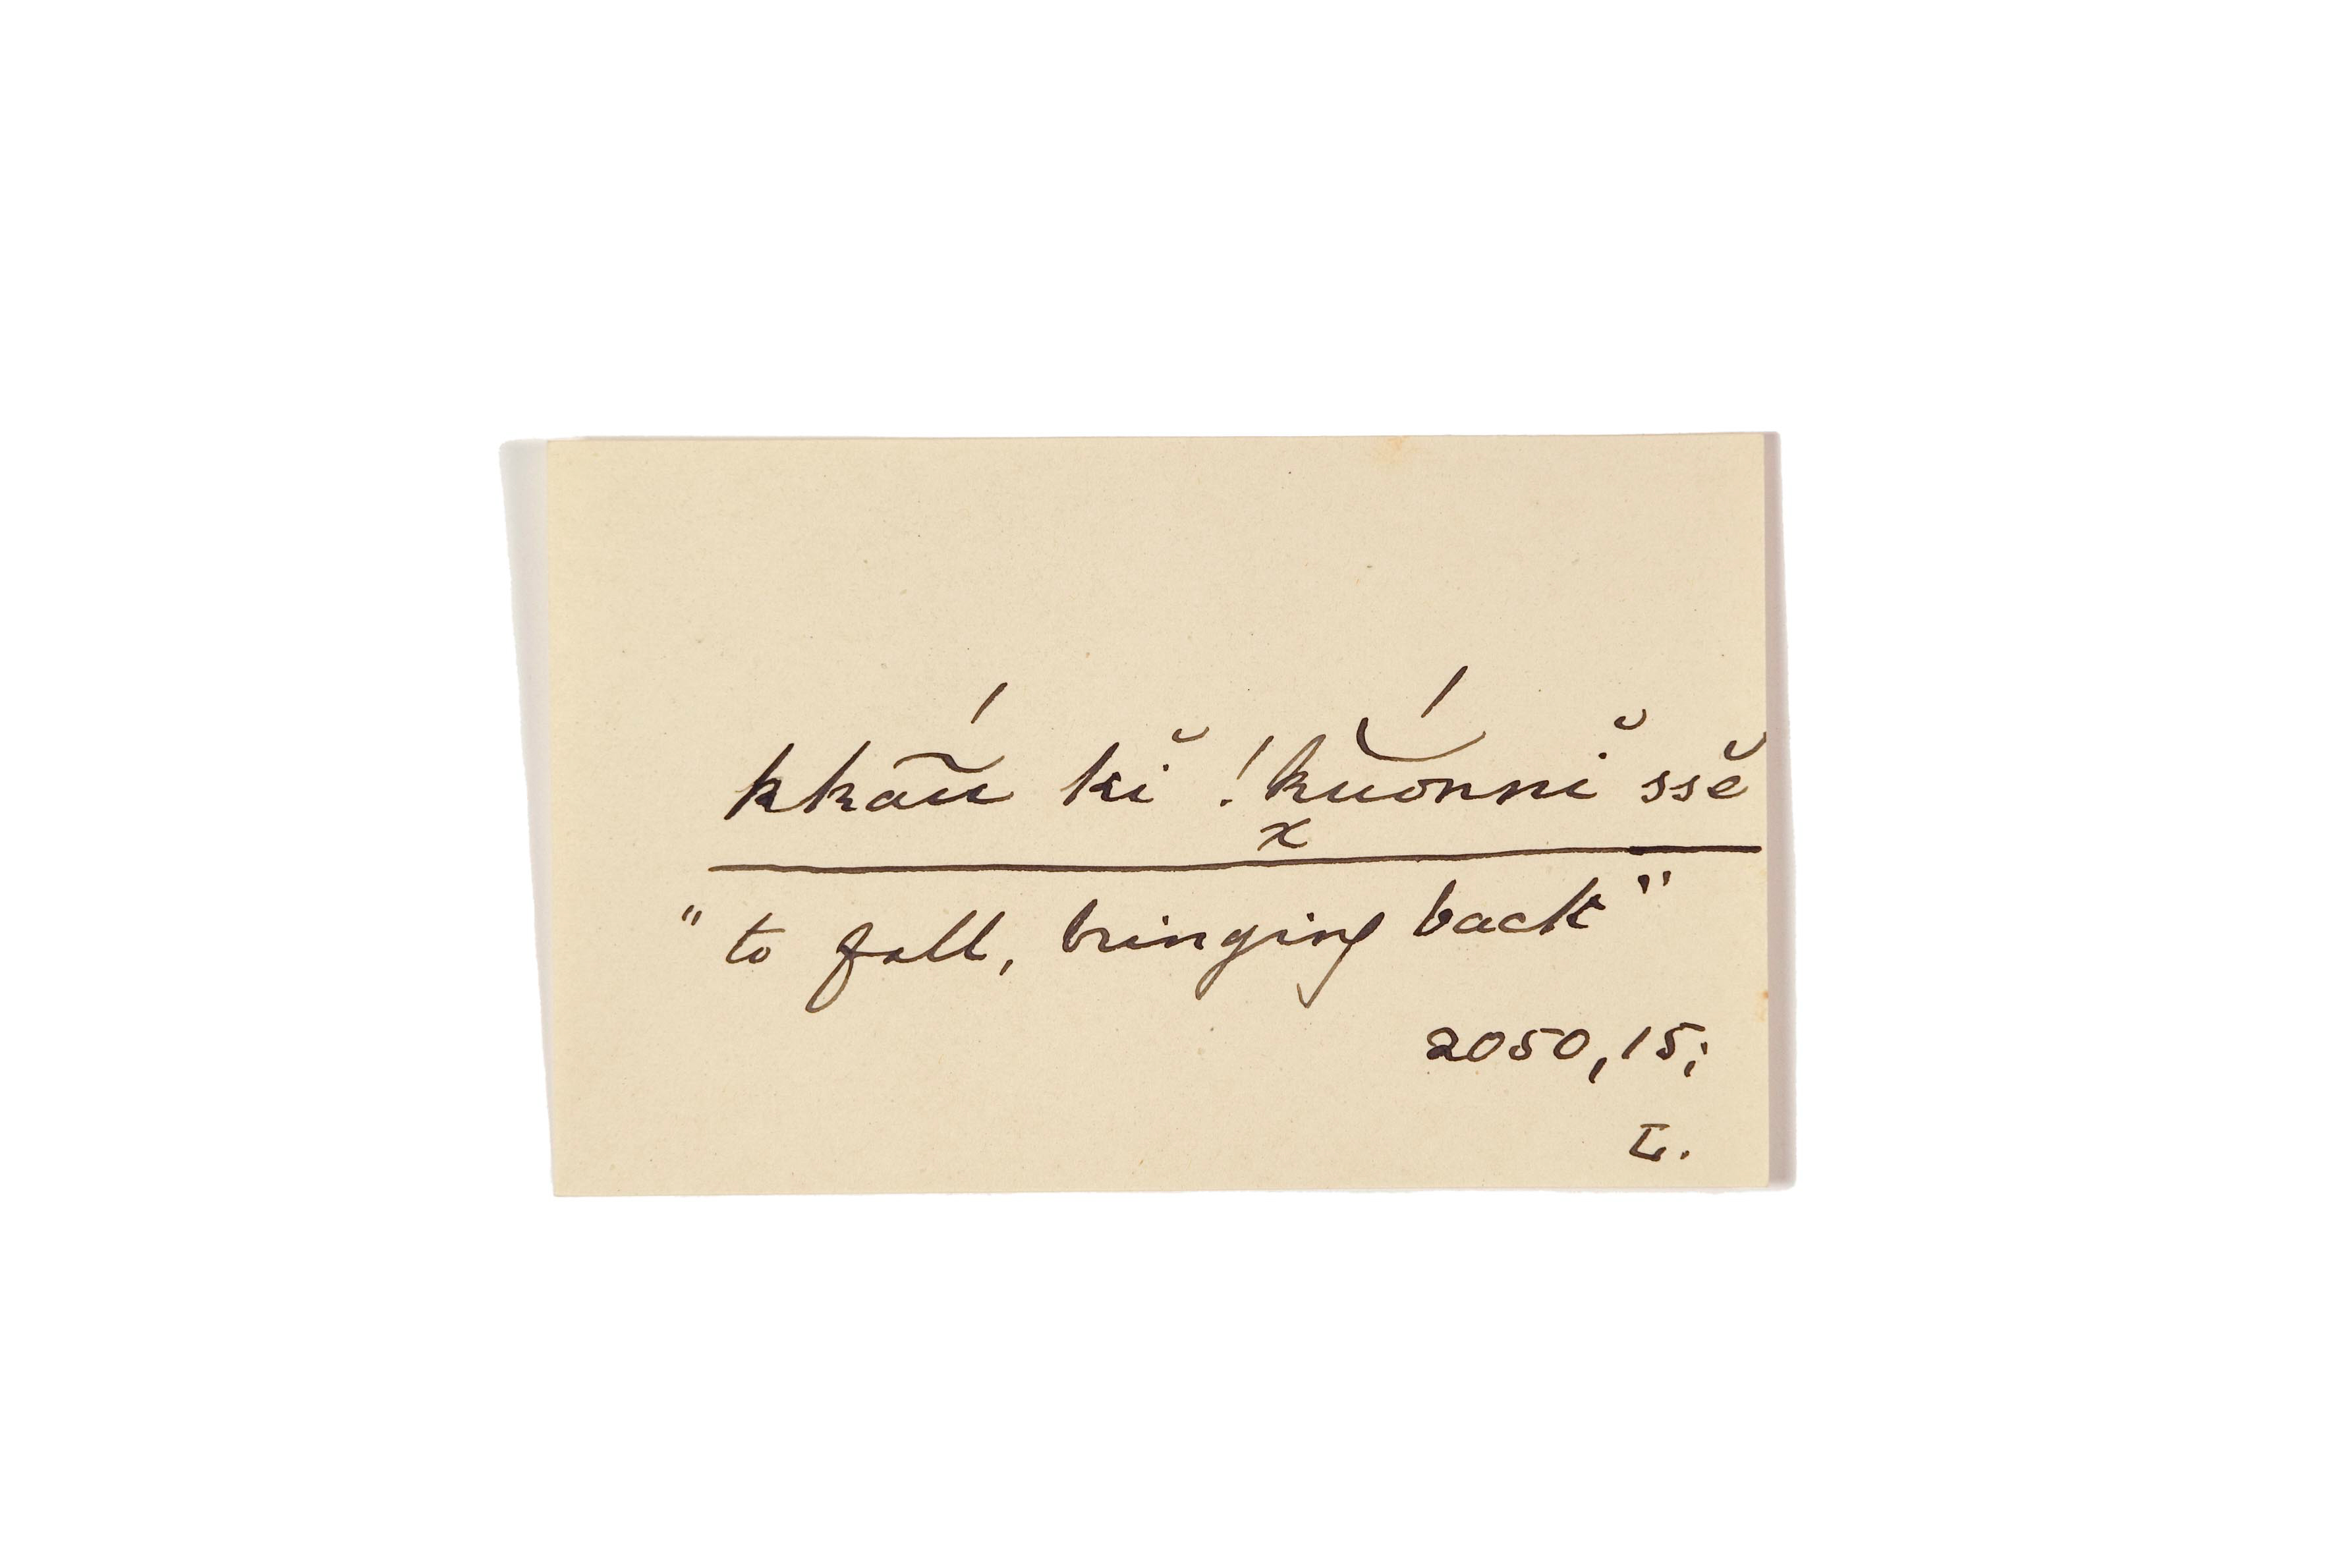 kkā́ū kĭ !kŭŏ́nnĭ ssĕ
x
"to fall, bringing back"
2050, 15;
L.